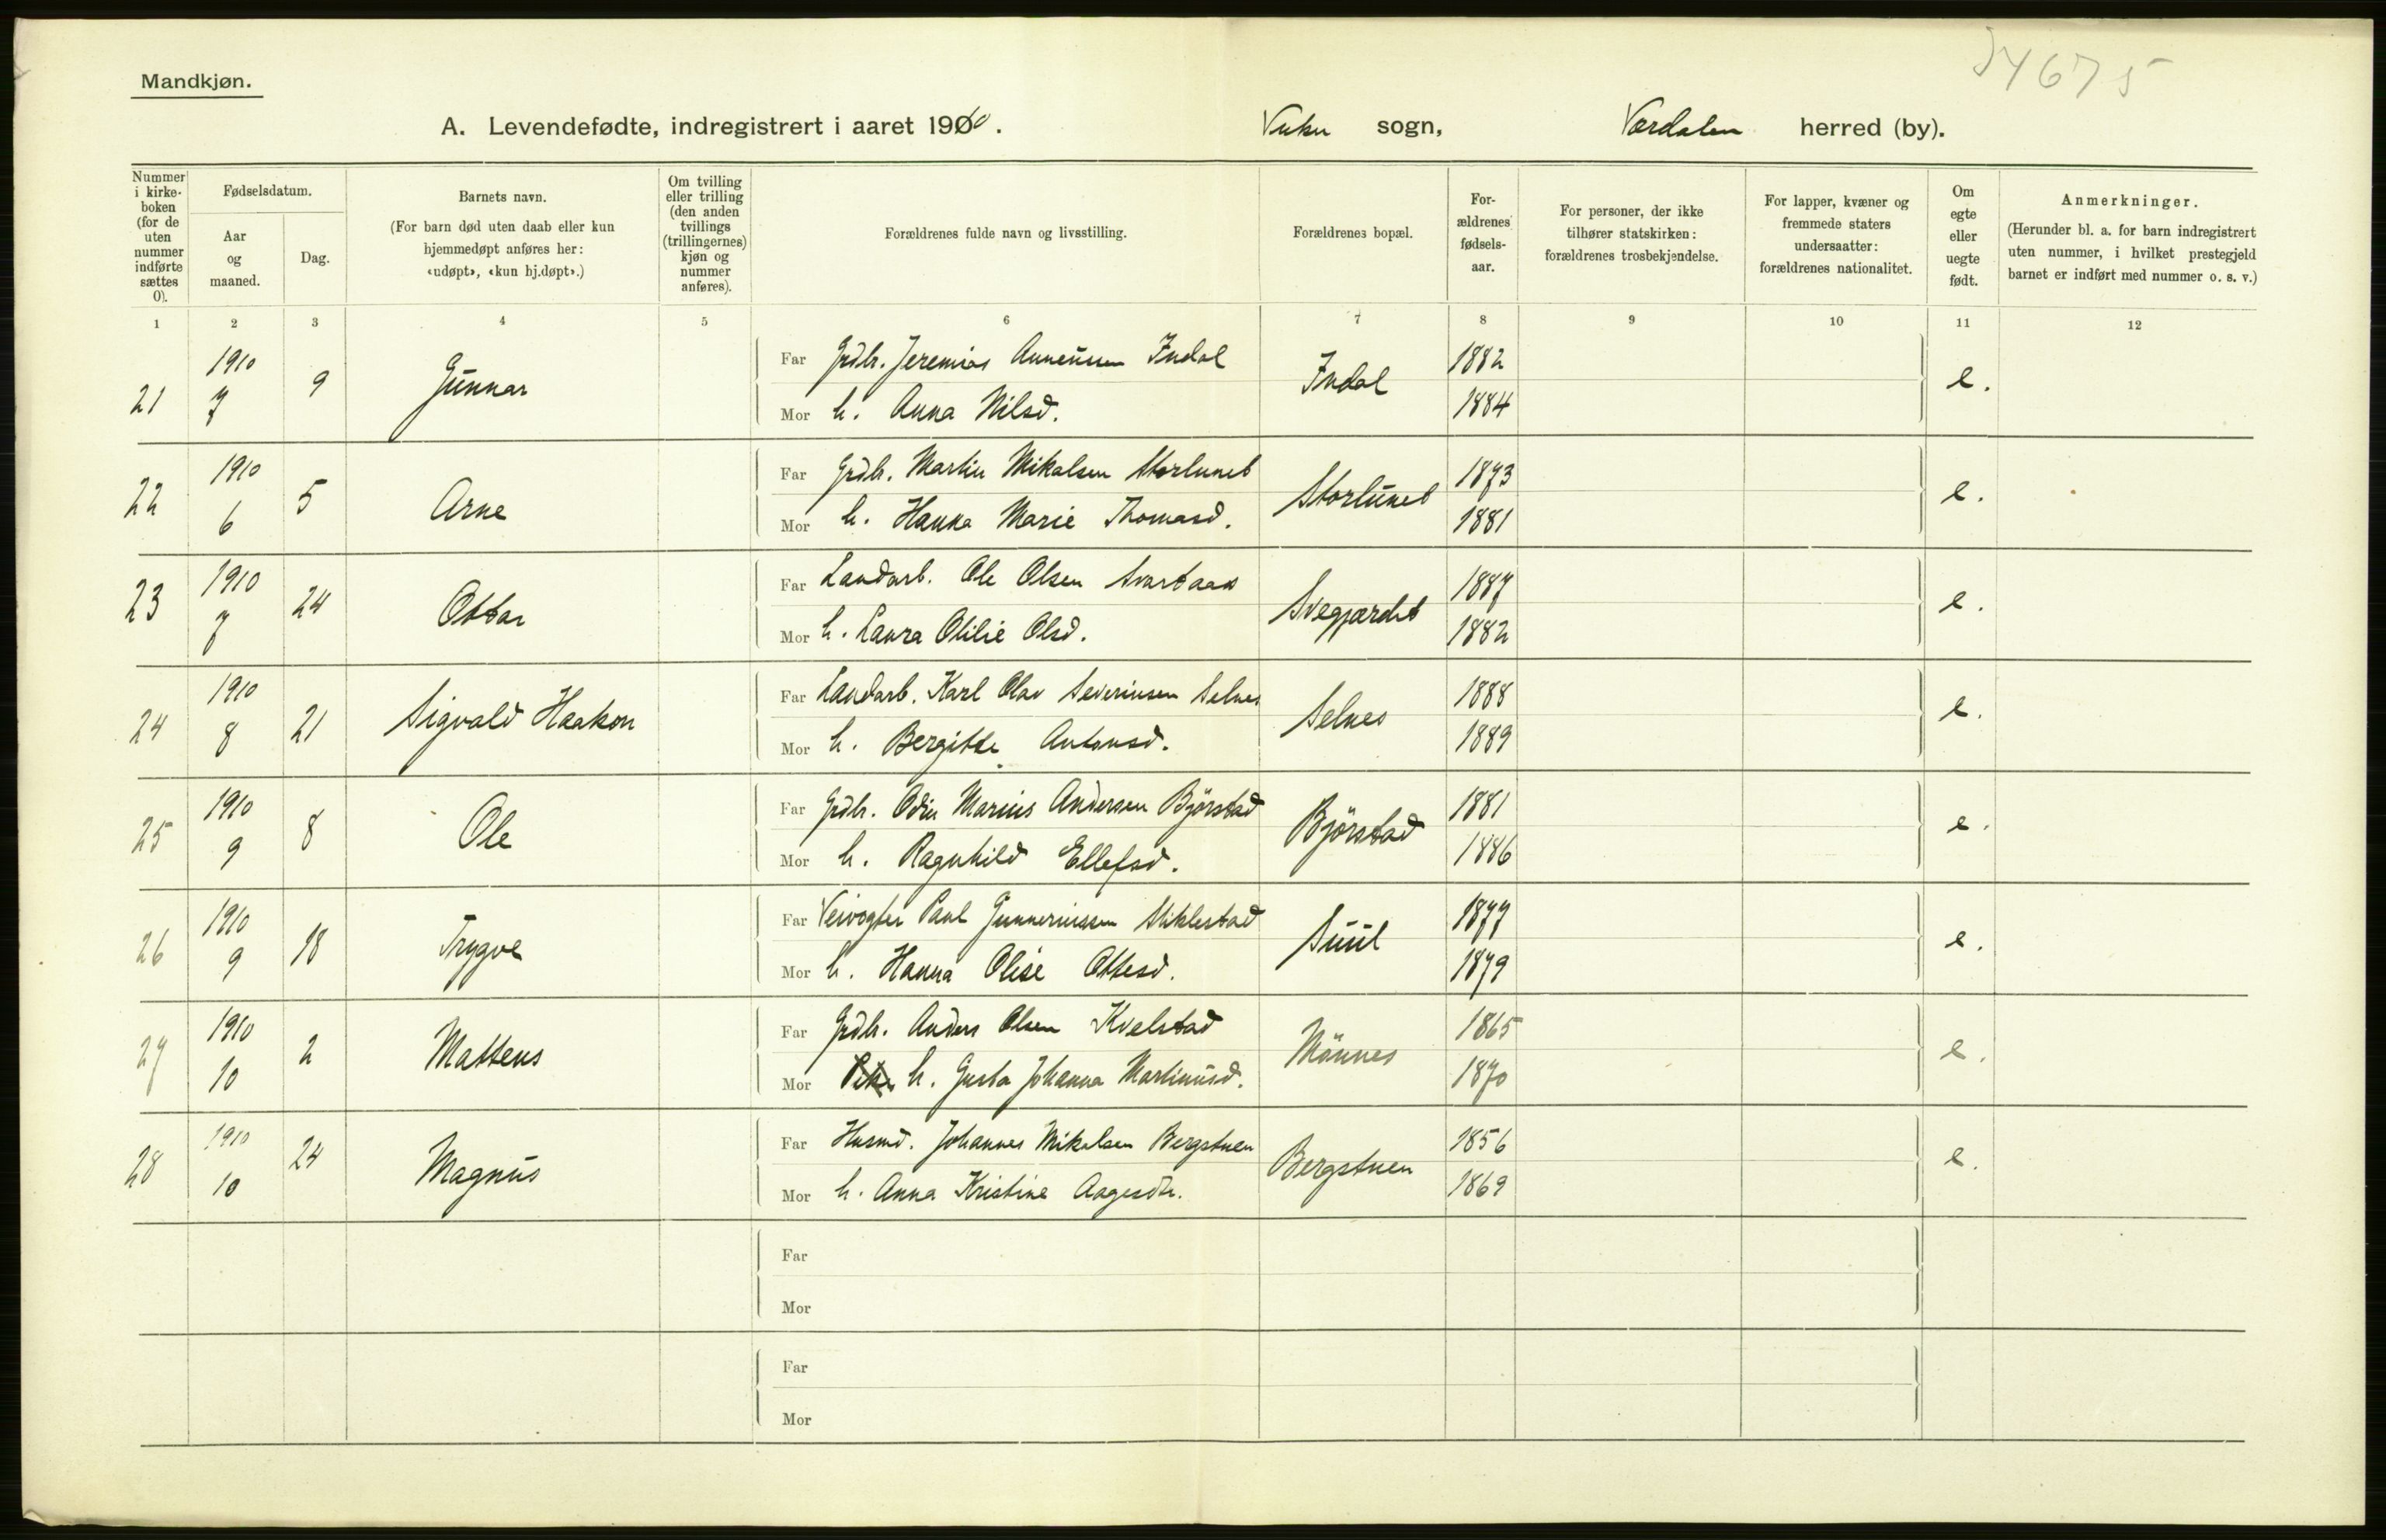 34675
Mandkjøn.
A. Levendefødte, indregistrert i aaret 1910. Vuku sogn, Værdalen herred (by).
Nummer i kirkeboken (for de uten nummer indførte sættes 0).
Fødselsdatum.
Aar og maaned.
Dag.
Barnets navn.
(For barn død uten daab eller kun hjemmedøpt anføres her: «udøpt», «kun hj.døpt».)
Om tvilling eller trilling (den anden tvillings (trillingernes) kjøn og nummer anføres).
Forældrenes fulde navn og livsstilling.
Forældrenes bopæl.
Forældrenes fødselsaar.
For personer, der ikke tilhører statskirken: forældrenes trosbekjendelse.
For lapper, kvæner og fremmede staters undersaatter: forældrenes nationalitet.
Om egte eller uegte født.
Anmerkninger.
(Herunder bl. a. for barn indregistrert uten nummer, i hvilket prestegjeld barnet er indført med nummer o. s. v.)
1 2 3 4 5 6 7 8 9 10 11 12
21 1910 7 9 Gunnar Far Grdbr. Jeremias Anneusen Indal Indal 1882 e.
Mor h. Anna Nilsd. 1884
22 1910 6 5 Arne Far Grdbr. Martin Mikalsen Storlunet Storlunet 1873 e.
Mor h. Hanna Marie Thomasd. 1881
23 1910 7 24 Ottar Far Landarb. Ole Olsen Svartaas Svegjærdet 1887 e.
Mor h. Laura Otilie Olsd. 1882
24 1910 8 21 Sigvald Haakon Far Landarb. Karl Olav Severinsen Selnes Selnes 1888 e.
Mor h. Bergitte Antonsd. 1889
25 1910 9 8 Ole Far Grdbr. Odin Marius Andersen Björstad Björstad 1881 e.
Mor h. Ragnhild Ellefsd. 1886
26 1910 9 18 Trygve Far Veivogter Paul Gunneriussen Stiklestad Suul 1877 e.
Mor h. Hanna Olise Ottesd. 1879
27 1910 10 2 Mattens Far Grdbr. Anders Olsen Kvelstad Mönnes 1865 e.
Mor h. Gusta Johanna Martinusd. 1870
28 1910 10 24 Magnus Far Husmd. Johannes Mikalsen Bergstuen Bergstuen 1856 e.
Mor h. Anna Kristine Aagesdtr. 1869
Far
Mor
Far
Mor